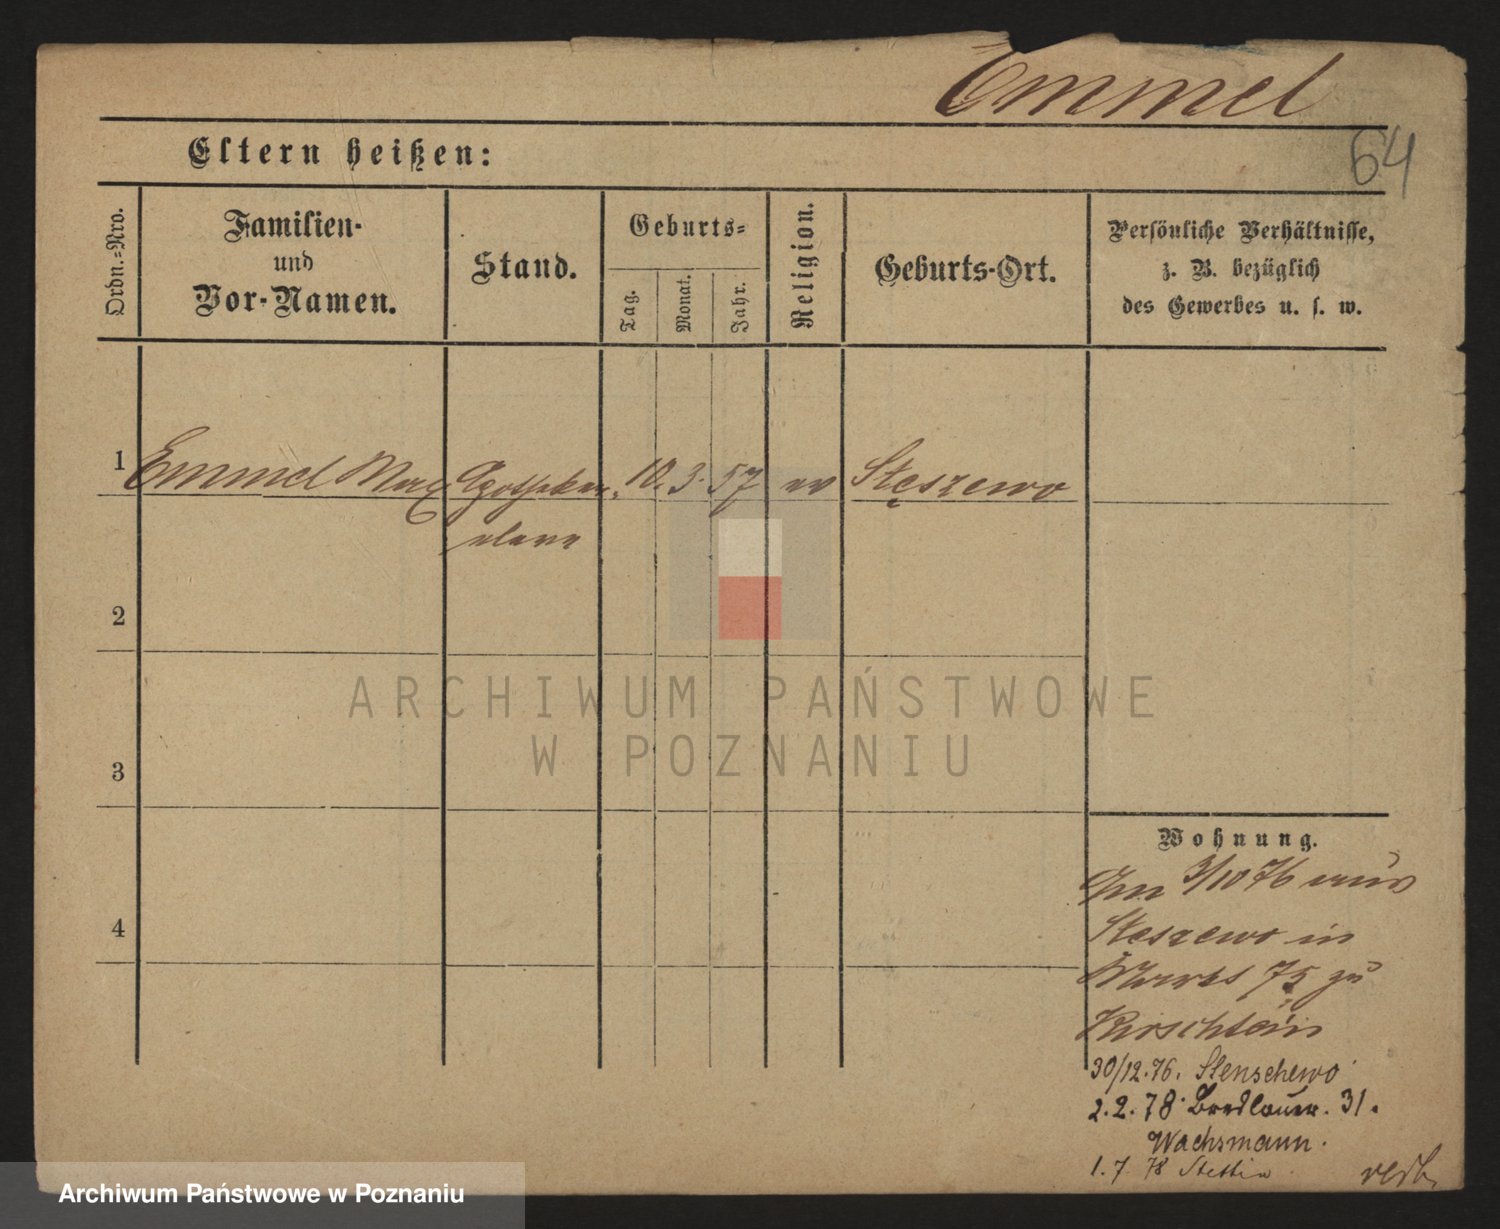 Emmel
64
Eltern heißen:
Ordn.-Nro.
Familien-
und
Vor-Namen.
Stand.
Geburts-
Tag.
Monat.
Jahr.
Religion.
Geburts-Ort.
Persönliche Verhältnisse,
z. B. bezüglich
des Gewerbes u. s. w.
1 Emmel Max Apotheker 10. 3. 57 ev Stęszewo
eleve
2
3
4
Wohnung.
Am 3/10 76 aus
Stęszewo in
Markt 75 zu
Kirschstein
30/12.76. Stenschewo
2.2.78 Breslauer. 31.
Wachsmann.
1.7.78 Stettin
ARCHIWUM PAŃSTWOWE
W POZNANIU
Archiwum Państwowe w Poznaniu